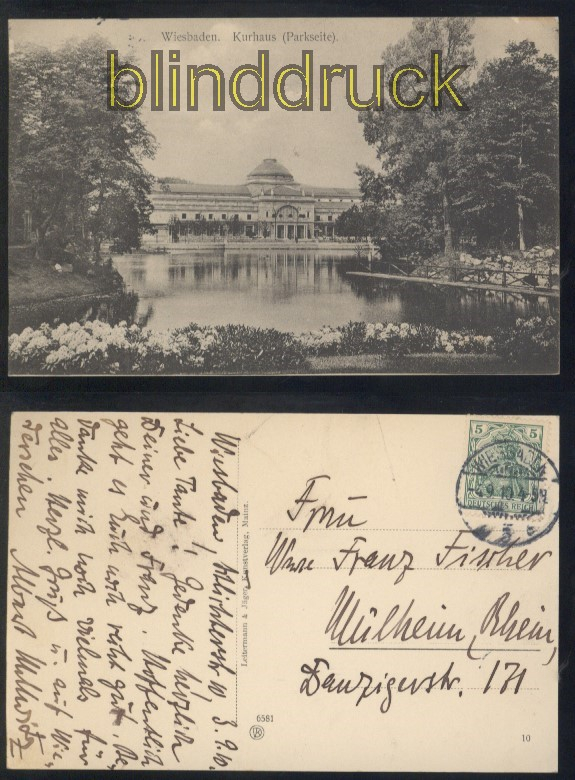 Wiesbaden. Kurhaus (Parkseite).
blinddruck
Wiesbaden, 3.9.10.
Liebe Tante! Gedenke herzlich
Deiner und Franz. Hoffentlich
geht es Euch noch recht gut. Be-
danke mich noch vielmals für
alles. Herzl. Gruß u. auf Wie-
dersehen Albert
Leitermann & Jäger, Kunstverlag, Mainz.
6581
5 5
DEUTSCHES REICH
WIESBADEN
4.9.10.
Frau
Wwe Franz Fischer
Mülheim, Rhein,
Danzigerstr. 171
10